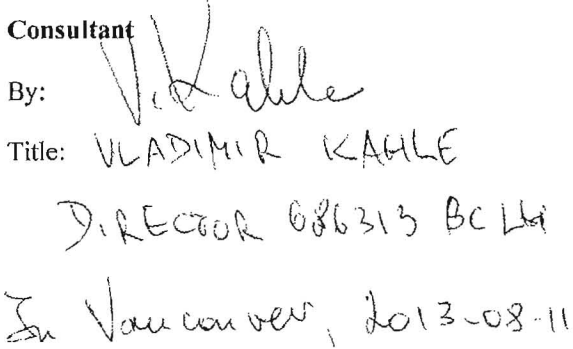 Consultant
By: V. Kahle
Title: VLADIMIR KAHLE
DIRECTOR 686313 BC Ltd
In Vancouver, 2013-08-11